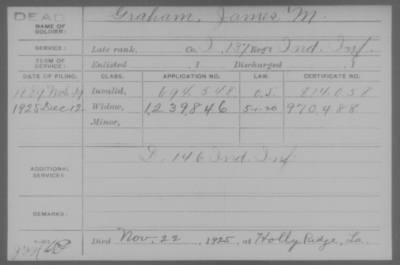 DEAD
NAME OF SOLDIER: Graham, James M.
SERVICE: Late rank, Co. I, 137 Reg't Ind. Inf.
TERM OF SERVICE: Enlisted , 1 Discharged , 1
DATE OF FILING. CLASS. APPLICATION NO. LAW. CERTIFICATE NO.
Invalid, 694.548 814.058
1925 Dec 12 Widow, 1239846 5-1-20 970.488
Minor,
ADDITIONAL SERVICES: D. 146 Ind. Inf
REMARKS:
Died Nov. 22, 1925, at Holly Ridge, La.